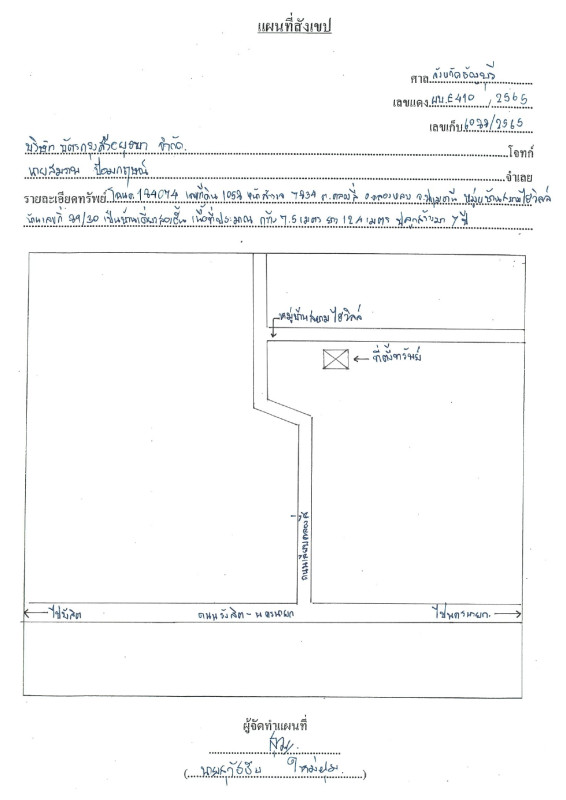 แผนที่สังเขป
ศาล จังหวัดธัญบุรี
เลขแดง ผบ.E410 / 2565
เลขเก็บ 6037/2565
บริษัท บัตรกรุงศรีอยุธยา จำกัด. โจทก์
นายสมภพ ป้อมกฤษณ์ จำเลย
รายละเอียดทรัพย์ โฉนด เลขที่ดิน 1053 หน้าสำรวจ 7934 ต.คลองสี่ อ.คลองหลวง จ.ปทุมธานี หมู่บ้าน
บ้านเลขที่ 39/30 เป็นบ้านเดี่ยวสองชั้น เนื้อที่ประมาณ กว้าง 7.5 เมตร ยาว 12.4 เมตร ปลูกสร้างมา 7 ปี
ที่ตั้งทรัพย์
ถนนเลียบคลองสี่
ไปรังสิต ถนนรังสิต - นครนายก ไปนครนายก
ผู้จัดทำแผนที่